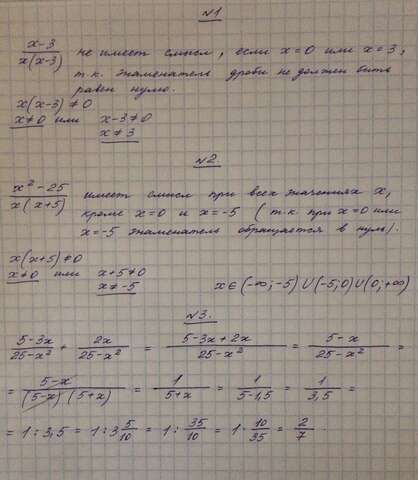 №1
x-3 / x(x-3) не имеет смысла, если x=0 или x=3,
т.к. знаменатель дроби не должен быть
равен нулю.
x(x-3)≠0
x≠0 или x-3≠0
x≠3
№2
x²-25 / x(x+5) имеет смысл при всех значениях x,
кроме x=0 и x=-5 (т.к. при x=0 или
x=-5 знаменатель обращается в нуль).
x(x+5)≠0
x≠0 или x+5≠0
x≠-5
x∈(-∞;-5)∪(-5;0)∪(0;+∞)
№3.
5-3x / 25-x² + 2x / 25-x² = 5-3x+2x / 25-x² = 5-x / 25-x² =
= 5-x / (5-x)(5+x) = 1 / 5+x = 1 / 5-1,5 = 1 / 3,5 =
= 1 : 3,5 = 1 : 3 5/10 = 1 : 35/10 = 1 · 10/35 = 2/7.